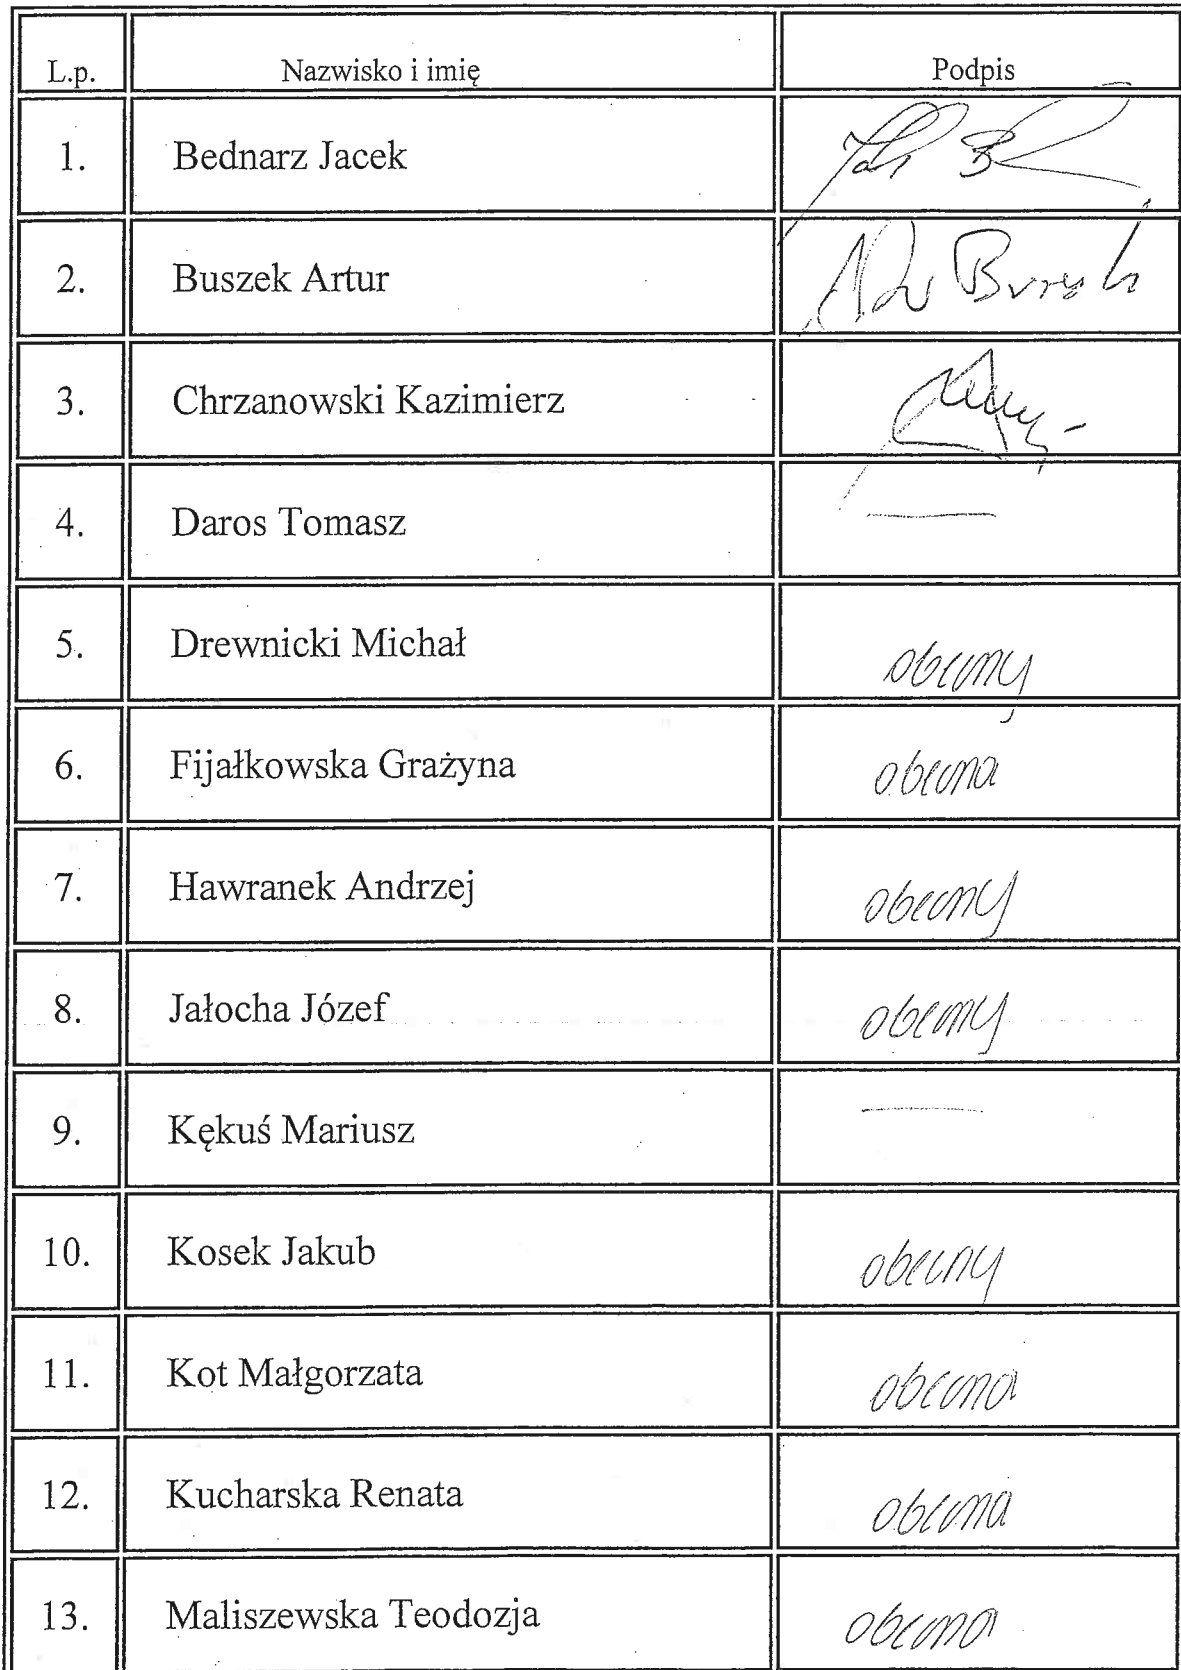 L.p. Nazwisko i imię Podpis
1. Bednarz Jacek
2. Buszek Artur
3. Chrzanowski Kazimierz
4. Daros Tomasz —
5. Drewnicki Michał obecny
6. Fijałkowska Grażyna obecna
7. Hawranek Andrzej obecny
8. Jałocha Józef obecny
9. Kękuś Mariusz —
10. Kosek Jakub obecny
11. Kot Małgorzata obecna
12. Kucharska Renata obecna
13. Maliszewska Teodozja obecna